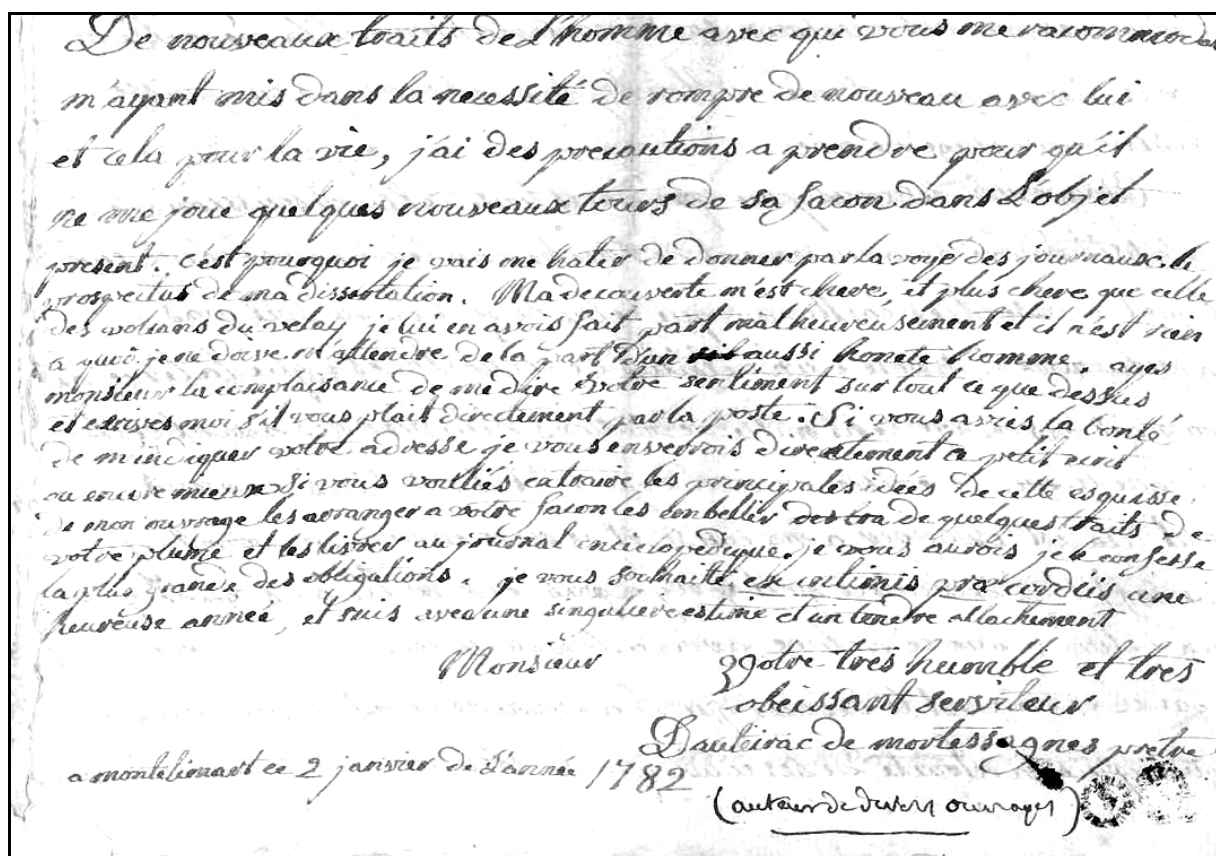 De nouveaux traits de l'homme avec qui vous me racommodés
m'ayant mis dans la necessité de rompre de nouveau avec lui
et cela pour la vie, j'ai des precautions a prendre pour qu'il
ne me joue quelques nouveaux tours de sa facon dans l'objet
present. c'est pourquoi je vais me hater de donner par la voye des journaux le
prospectus de ma dissertation. Ma decouverte m'est chere, et plus chere que celle
des volcans du velay je lui en avois fait part malheureusement et il n'est rien
a quoi je ne doive m'attendre de la part d'un aussi honete homme. ayes
monsieur la complaisance de me dire votre sentiment sur tout ce que dessus
et ecrives moi s'il vous plait directement par la poste. Si vous aviés la bonté
de m'indiquer votre adresse je vous enverrois directement ce petit ecrit
ou encore mieux si vous vouliés extraire les principales idées de cette esquisse
de mon ouvrage les arranger a votre facon les embellir de quelques traits de
votre plume et les livrer au journal enciclopedique. je vous aurois je le confesse
la plus grande des obligations. je vous souhaite ex intimis præcordiis une
heureuse année, et suis avec une singuliere estime et un tendre attachement
Monsieur
Votre tres humble et tres
obeissant serviteur
D'auteirac de mortessagnes pretre
a montelimart ce 2 janvier de l'année 1782
(auteur de divers ouvrages)